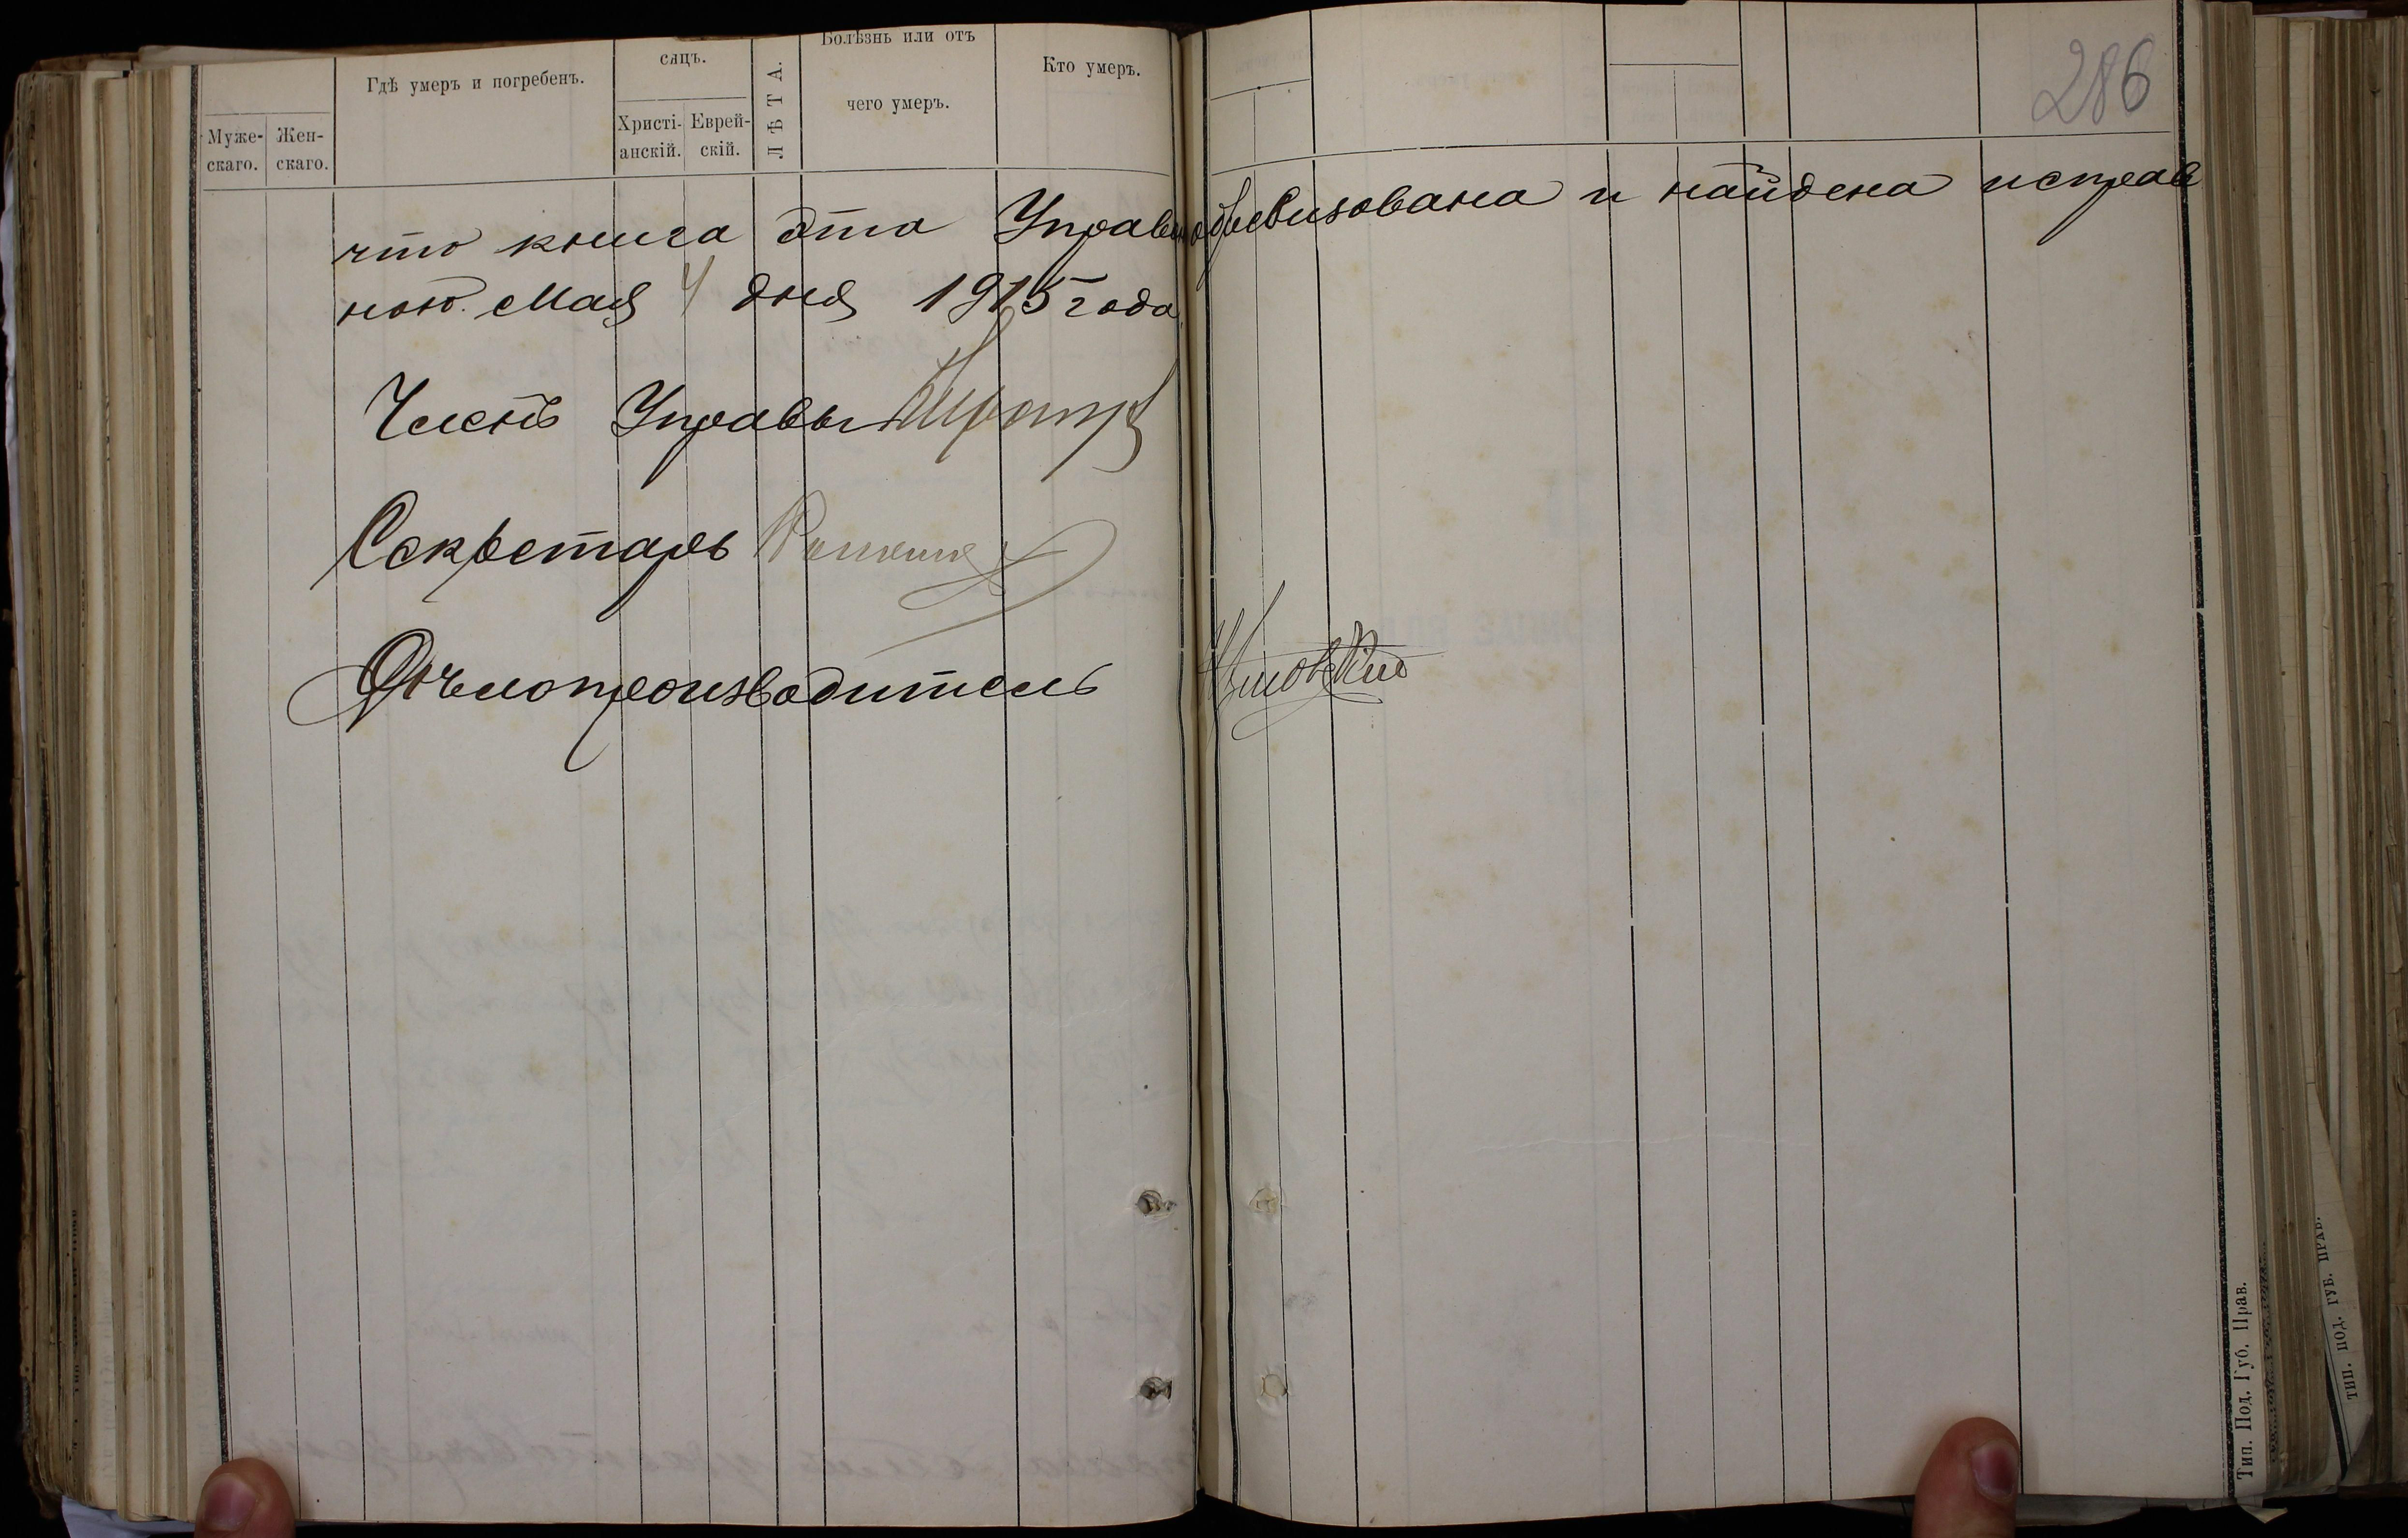 286
Муже-скаго.
Жен-скаго.
Гдѣ умеръ и погребенъ.
сяцъ.
Христі-анскій.
Еврей-скій.
ЛѢТА.
Болѣзнь или отъ
чего умеръ.
Кто умеръ.
что книга эта Управою обревизована и найдена исправ
ною. Мая 4 дня 1915 года
Членъ Управы
Секретарь
Дѣлопроизводитель
Тип. Под. Губ. Прав.
ТИП. ПОД. ГУБ. ПРАВ.